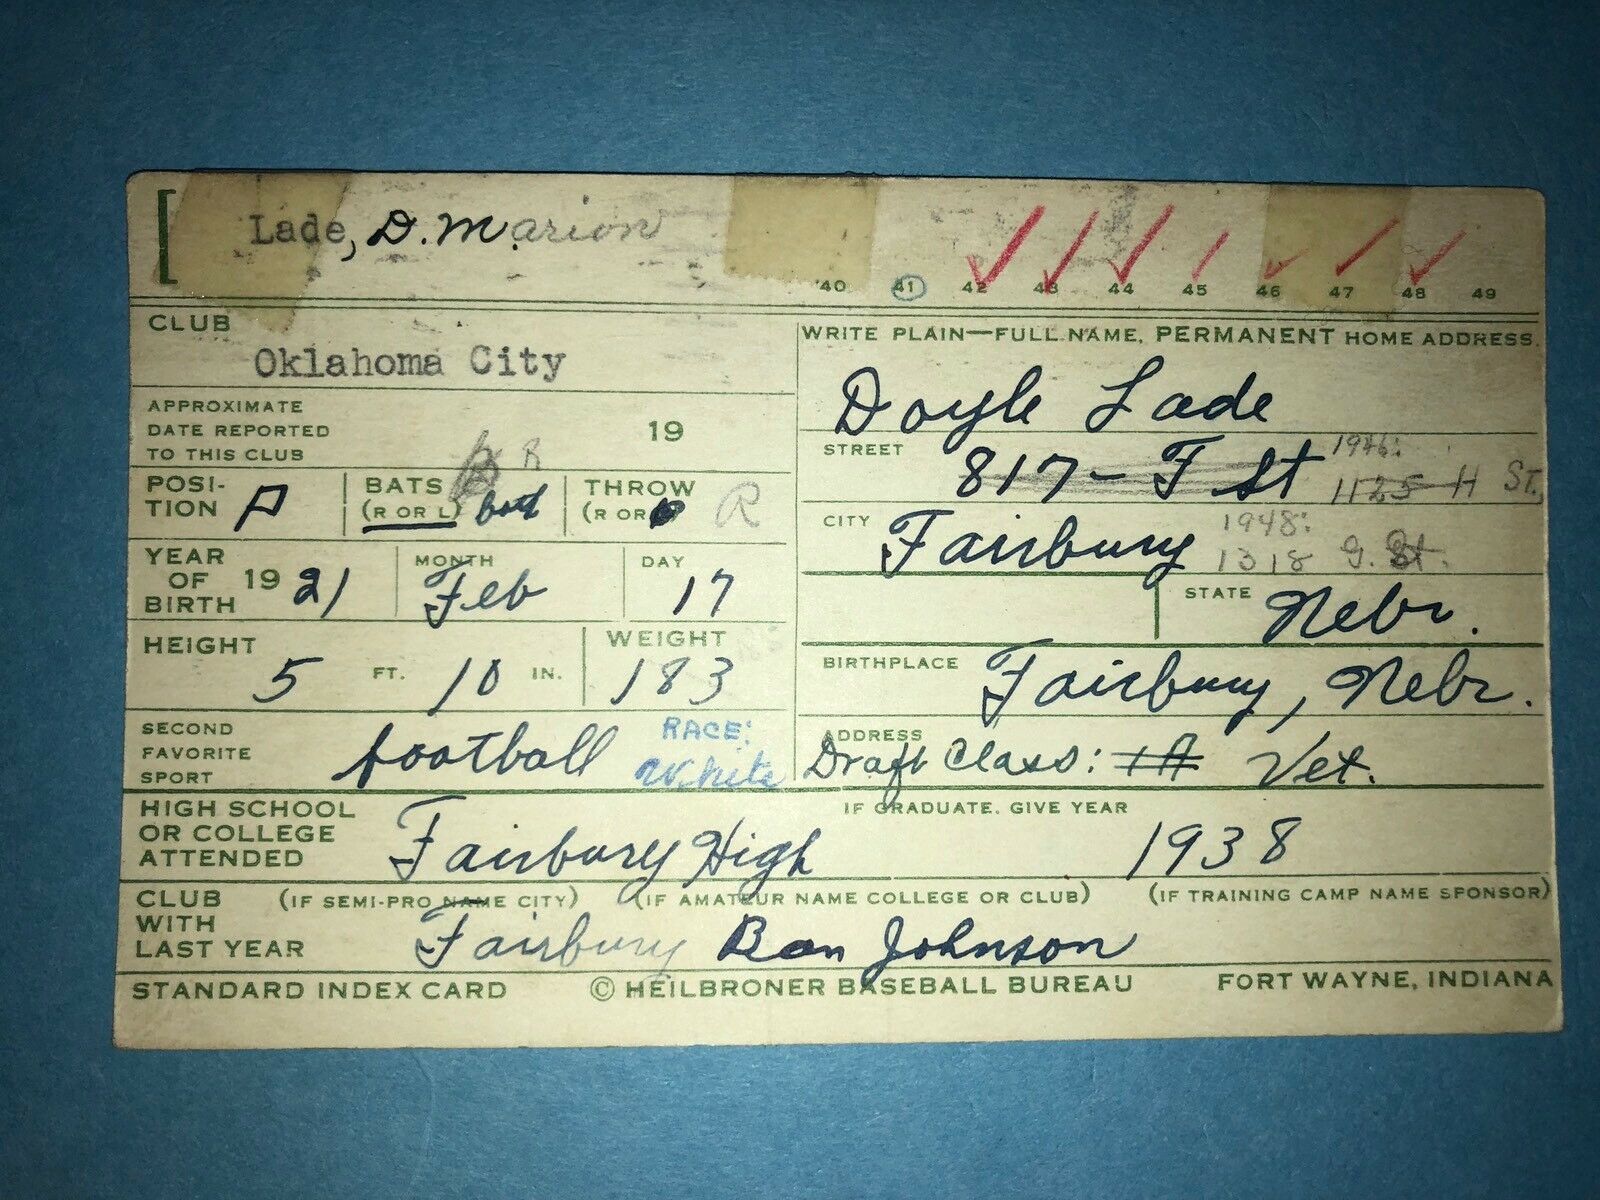 Lade, D. Marion
40 41 42 43 44 45 46 47 48 49
CLUB
Oklahoma City
APPROXIMATE
DATE REPORTED 19
TO THIS CLUB
POSI-
TION P
BATS R
(R OR L) both
THROW
(R OR R
YEAR
OF 19 21
BIRTH
MONTH
Feb
DAY
17
HEIGHT
5 FT. 10 IN.
WEIGHT
183
SECOND
FAVORITE football
SPORT
RACE:
White
WRITE PLAIN—FULL NAME, PERMANENT HOME ADDRESS.
Doyle Lade
STREET
817 - F St
1946:
1125 H St.,
CITY
Fairbury
1948:
1318 G. St.
STATE
Nebr.
BIRTHPLACE
Fairbury, Nebr.
ADDRESS
Draft Class: 1A Vet.
HIGH SCHOOL
OR COLLEGE
ATTENDED Fairbury High
IF GRADUATE, GIVE YEAR
1938
CLUB (IF SEMI-PRO NAME CITY) (IF AMATEUR NAME COLLEGE OR CLUB) (IF TRAINING CAMP NAME SPONSOR)
WITH
LAST YEAR Fairbury Ban Johnson
STANDARD INDEX CARD © HEILBRONER BASEBALL BUREAU FORT WAYNE, INDIANA